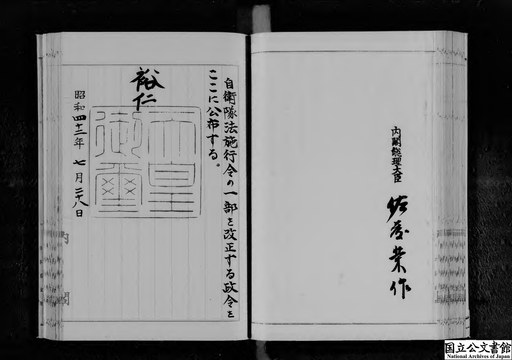 自衛隊法施行令の一部を改正する政令を
ここに公布する。
裕仁
天皇
御璽
昭和四十二年七月二十八日
内閣総理大臣
佐藤榮作
内閣
国立公文書館
National Archives of Japan